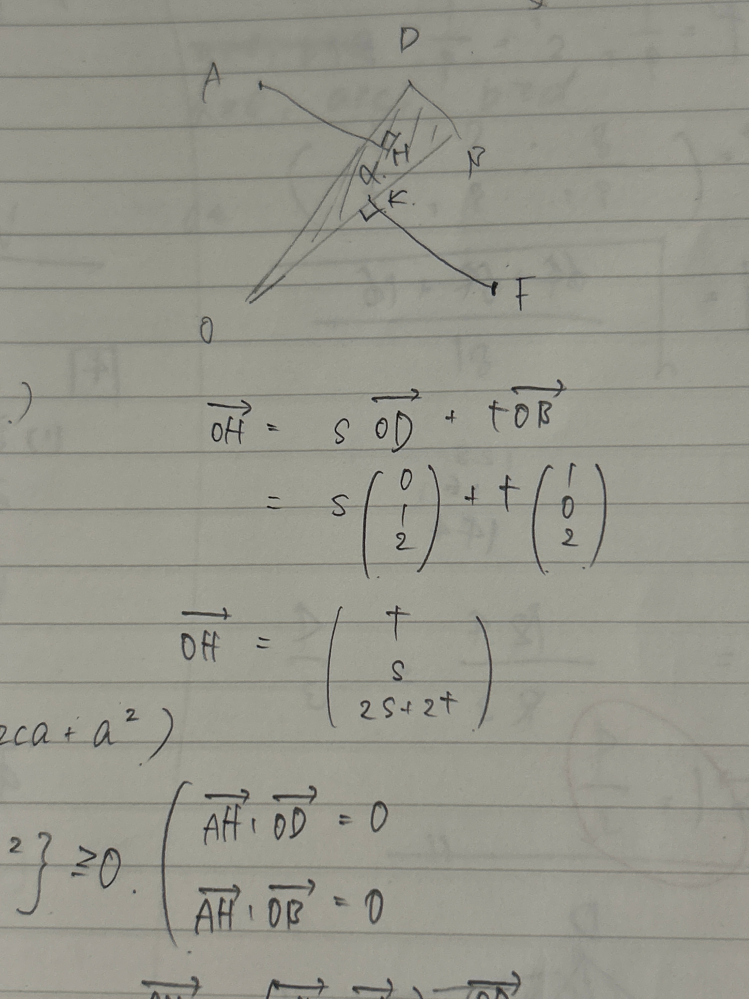 D
A
H
B
α
K.
F
O
.)
→OH = s →OD + t→OB
= s (0 1 2) + t (1 0 2)
→OH = (t s 2s+2t)
2ca + a²)
→AH · →OD = 0
²} ≧0.
→AH · →OB = 0